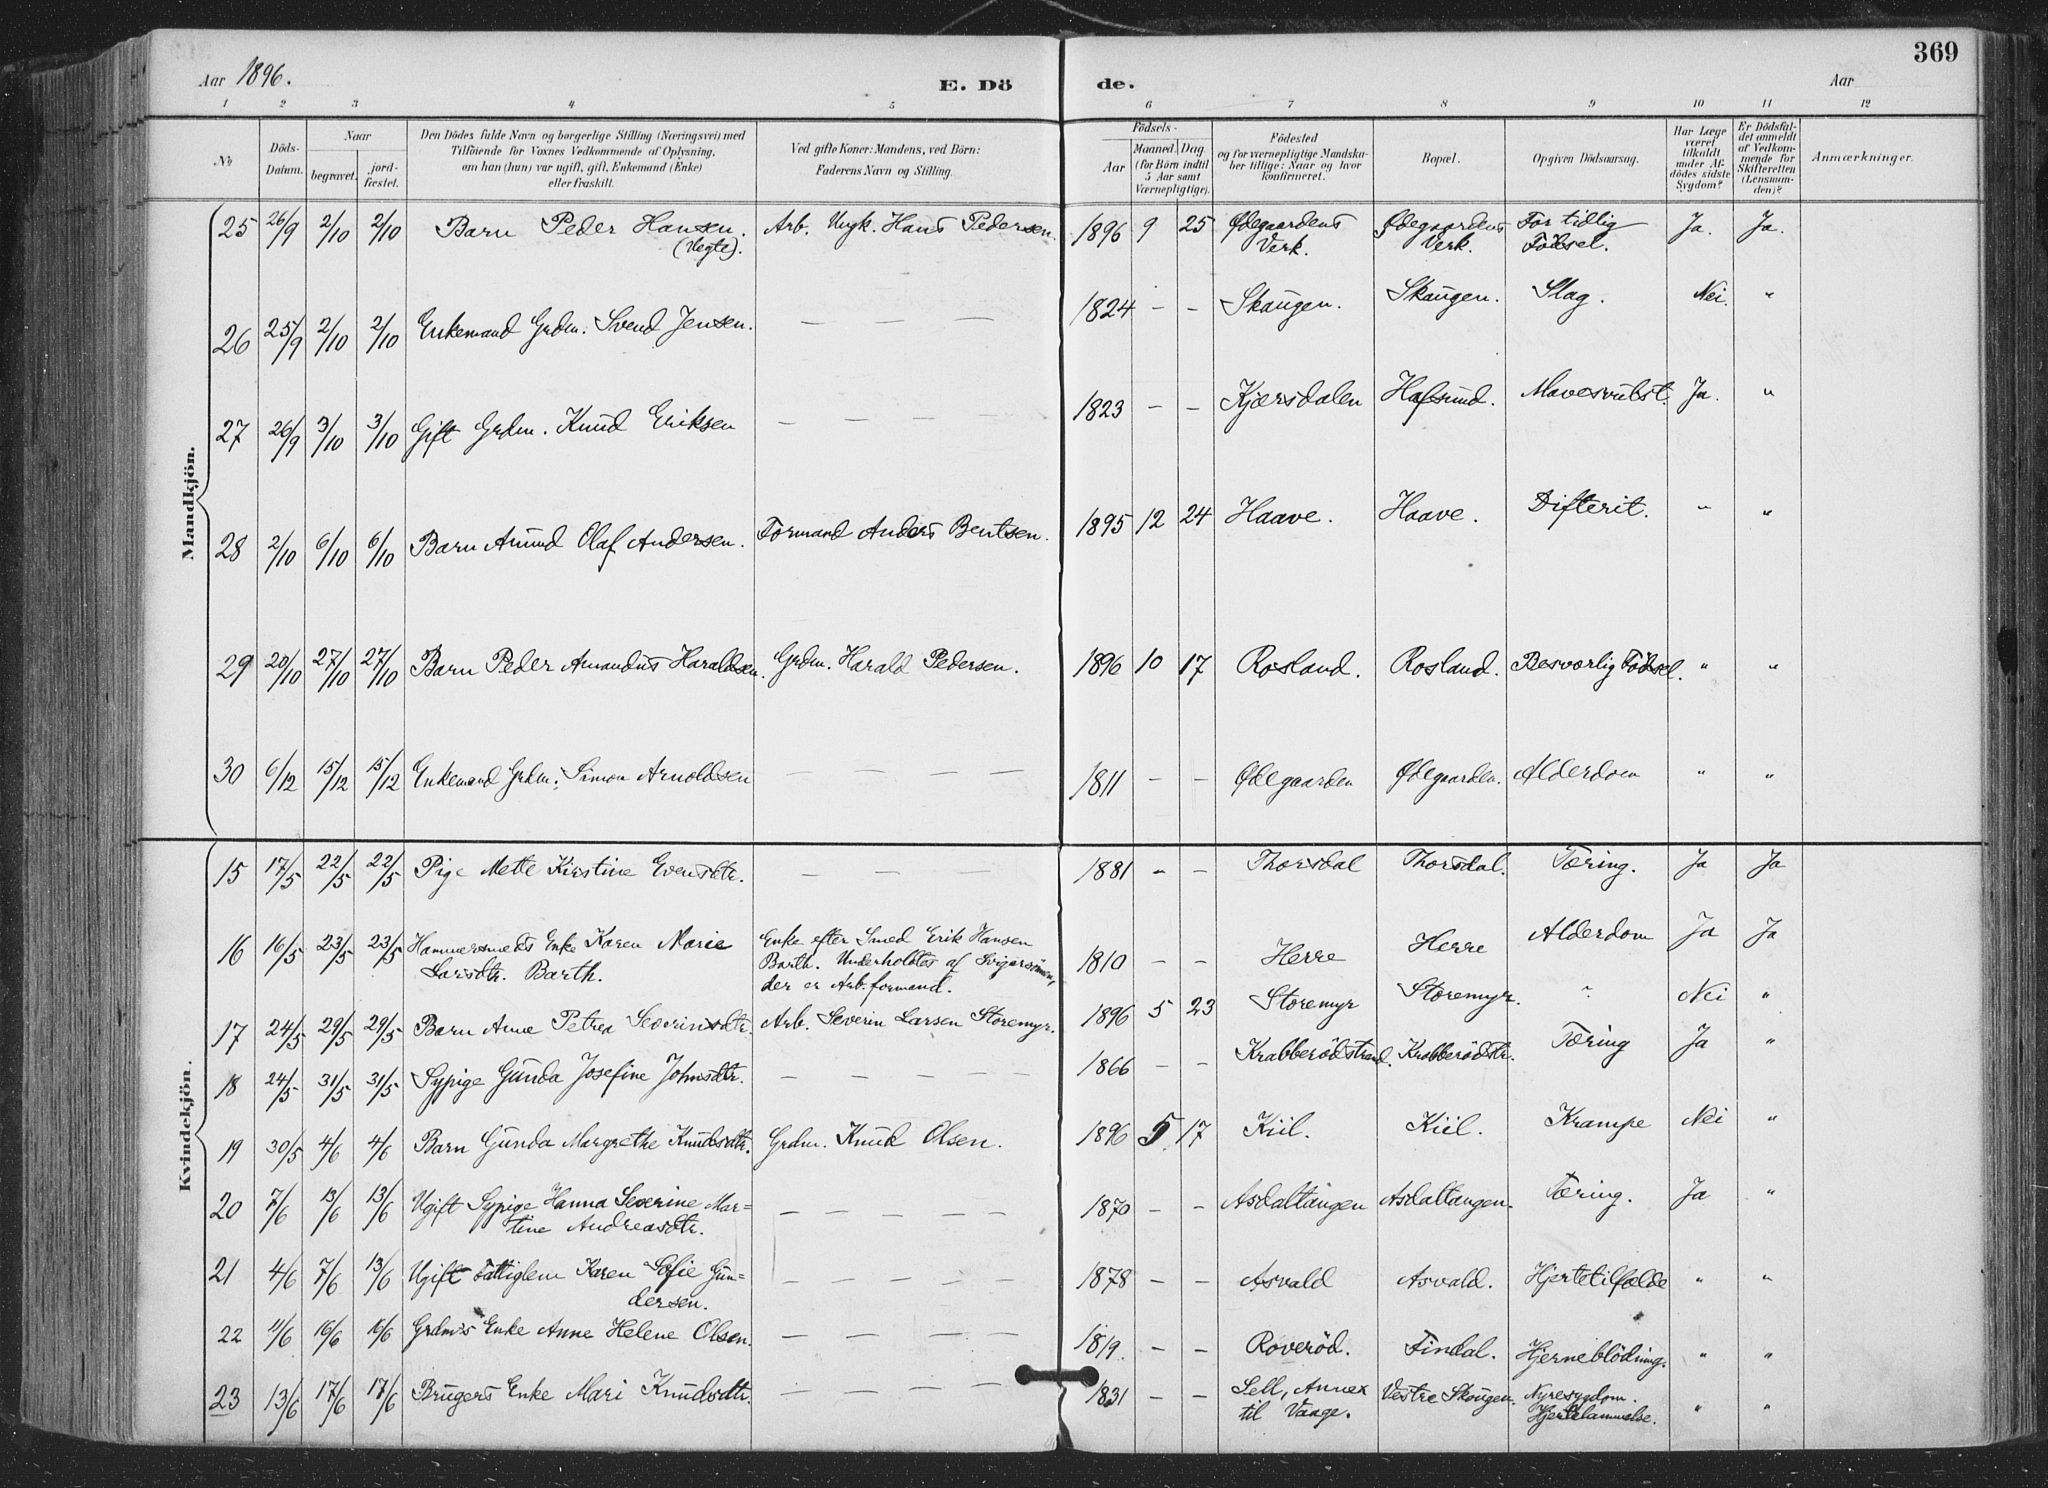 369
Aar 1896.
E. Dö de.
Aar
1 2 3 4 5 6 7 8 9 10 11 12
No
Döds-Datum.
Naar
begravet.
jord-fæstet.
Den Dödes fulde Navn og borgerlige Stilling (Næringsvei) med
Tilföiende for Voxnes Vedkommende af Oplysning,
om han (hun) var ugift, gift, Enkemand (Enke)
eller fraskilt.
Ved gifte Koner: Mandens, ved Börn:
Faderens Navn og Stilling.
Födsels-
Aar
Maaned. Dag.
(for Börn indtil
5 Aar samt
Værnepligtige).
Födested
og for værnepligtige Mandska-
ber tillige: Naar og hvor
konfirmeret.
Bopæl.
Opgiven Dödsaarsag.
Har Læge
været
tilkaldt
under Af-
dödes sidste
Sygdom?
Er Dödsfal-
det anmeldt
af Vedkom-
mende for
Skifteretten
(Lensman-
den)?
Anmærkninger.
Mandkjön.
25 26/9 2/10 2/10 Barn Peder Hansen. (Uegte). Arb. Ungk. Hans Pedersen. 1896 9 25 Ødegaardens Verk. Ødegaardens Verk. For tidlig Födsel. Ja. Ja.
26 25/9 2/10 2/10 Enkemand Grdm. Svend Jensen. — — — — 1824 — — Skaugen. Skaugen. Slag. Nei. "
27 26/9 3/10 3/10 Gift Grdm. Knud Eriksen — — — — 1823 — — Kjærsdalen Hafsund. Mavesvulst. Ja. "
28 2/10 6/10 6/10 Barn Amund Olaf Andersen. Formand Anders Bentsen. 1895 12 24 Haave. Haave. Difterit. " "
29 20/10 27/10 27/10 Barn Peder Amandus Haraldsen. Grdm. Harald Pedersen. 1896 10 17 Rosland. Rosland. Besværlig Födsel. " "
30 6/12 15/12 15/12 Enkemand Grdm. Simon Arnoldsen — — — — — 1811 — — Ødegaarden Ødegaarden. Alderdom " "
Kvindekjön.
15 17/5 22/5 22/5 Pige Mette Kirstine Evensdtr. — — — — 1881 " — Thorsdal Thorsdal. Tæring. Ja Ja
16 16/5 23/5 23/5 Hammersmeds Enke Karen Marie Larsdtr. Barth. Enke efter Smed Erik Hansen Barth. Underholdtes af Svigersönnen, der er Arb.formand. 1810 — — Herre Herre Alderdom Ja Ja
17 24/5 29/5 29/5 Barn Anne Petrea Severinsdtr. Arb. Severin Larsen Storemyr. 1896 5 23 Storemyr Storemyr. ? Nei "
18 24/5 31/5 31/5 Sypige Gunda Josefine Johnsdtr. — — — — — 1866 — — Krabberödstrand. Krabberödstr. Tæring Ja "
19 30/5 4/6 4/6 Barn Gunda Margrethe Knudsdtr. Grdm. Knud Olsen. 1896 5 17 Kiil. Kiil. Krampe Nei "
20 7/6 13/6 13/6 Ugift Sypige Hanna Severine Mar=tine Andreasdtr. — — — — — 1870 — — Asdaltangen Asdaltangen. Tæring. Ja "
21 4/6 7/6 13/6 Ugift Fattiglem Karen Sofie Gun=dersen. — — — — — 1878 — — Asvald Asvald. Hjertetilfælde " "
22 11/6 16/6 16/6 Grdm's Enke Anne Helene Olsen. — — — — — 1819. — — Roveröd. Findal. Hjerneblödning. " "
23 13/6 17/6 17/6 Brugers Enke Mari Knudsdtr. — — — — — 1831 — — Sell, Annex til Vaage. Vestre Skougen. Nyresygdom. Hjertelammelse. " "